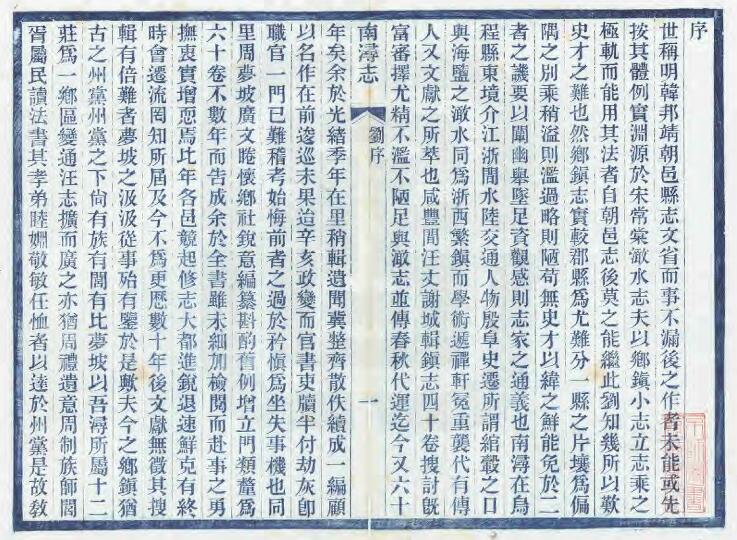 序
世稱明韓邦靖朝邑縣志文省而事不漏後之作者未能或先
按其體例實淵源於宋常棠澉水志夫以鄉鎮小志立志乘之
極軌而能用其法者自朝邑志後莫之能繼此劉知幾所以歎
史才之難也然鄉鎮志實較郡縣為尤難分一縣之片壤為偏
隅之別乘稍溢則濫過略則陋苟無史才以緯之鮮能免於二
者之譏要以闡幽舉墜足資觀感則志家之通義也南潯在烏
程縣東境介江浙間水陸交通人物殷阜史遷所謂綰轂之口
與海鹽之澉水同為浙西繁鎮而學術遞禪軒冕重襲代有傳
人又文獻之所萃也咸豐間汪丈謝城輯鎮志四十卷搜討既
富審擇尤精不濫不陋足與澉志並傳春秋代運迄今又六十
南潯志
劉序
一
年矣余於光緒季年在里稍輯遺聞冀整齊散佚續成一編顧
以名作在前逡巡未果迨辛亥政變而官書吏牘半付劫灰卽
職官一門已難稽考始悔前者之過於矜愼為坐失事機也同
里周夢坡廣文睠懷鄉社銳意編纂斟酌舊例增立門類釐為
六十卷不數年而告成余於全書雖未細加檢閱而赴事之勇
撫衷實增恧焉比年各邑競起修志大都進銳退速鮮克有終
時會遷流罔知所屆及今不為更歷數十年後文獻無徵其搜
輯有倍難者夢坡之汲汲從事殆有鑒於是歟夫今之鄉鎮猶
古之州黨州黨之下尙有族有閭有比夢坡以吾潯所屬十二
莊為一鄉區變通汪志擴而廣之亦猶周禮遺意周制族師閭
胥屬民讀法書其孝弟睦婣敬敏任恤者以達於州黨是故敎